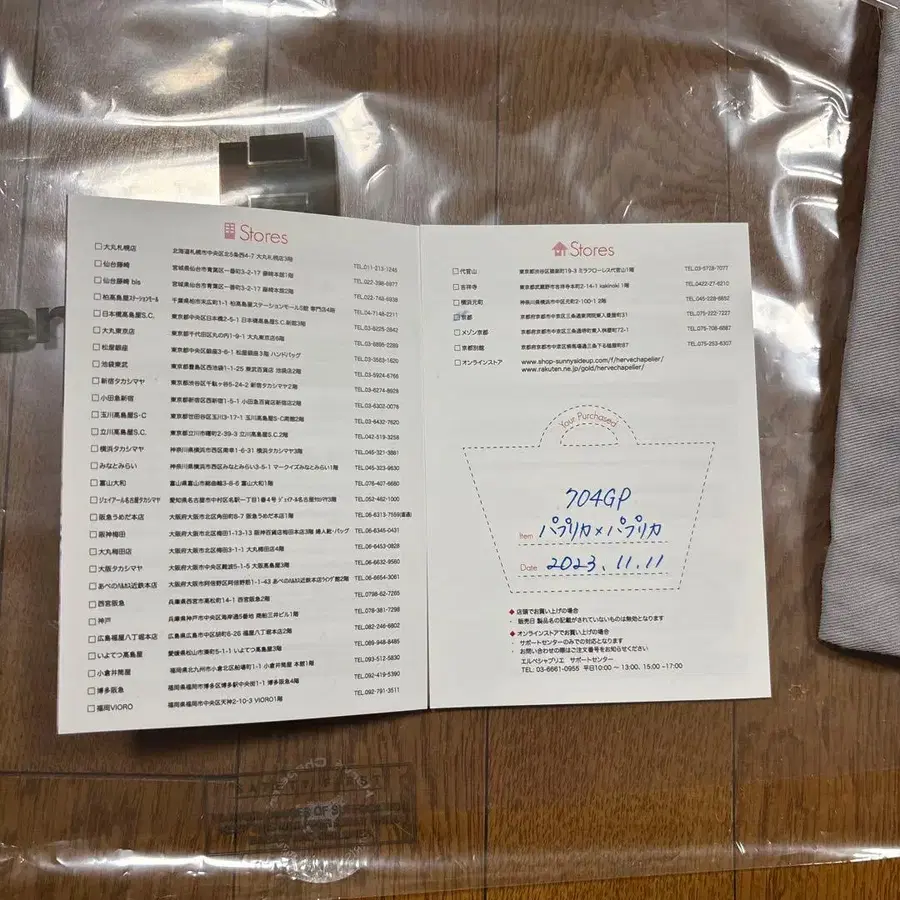 Stores
□大丸札幌店 北海道札幌市中央区北5条西4-7 大丸札幌店3階 TEL.011-213-1245
□仙台藤崎 宮城県仙台市青葉区一番町3-2-17 藤崎本館1階 TEL.022-398-6877
□仙台藤崎 bis 宮城県仙台市青葉区一番町3-2-17 藤崎本館2階
□柏高島屋ステーションモール 千葉県柏市末広町1-1 柏高島屋ステーションモールS館 専門店4階 TEL.04-7148-2211
□日本橋高島屋S.C. 東京都中央区日本橋2-5-1 日本橋高島屋S.C.新館3階 TEL.03-6225-2842
□大丸東京店 東京都千代田区丸の内1-9-1 大丸東京店6階 TEL.03-6895-2289
□松屋銀座 東京都中央区銀座3-6-1 松屋銀座3階 ハンドバッグ TEL.03-3563-1620
□池袋東武 東京都豊島区西池袋1-1-25 東武百貨店 池袋店2階 TEL.03-5924-6766
□新宿タカシマヤ 東京都渋谷区千駄ヶ谷5-24-2 新宿タカシマヤ2階 TEL.03-6274-8929
□小田急新宿 東京都新宿区西新宿1-5-1 小田急百貨店新宿店2階 TEL.03-6302-0076
□玉川高島屋S・C 東京都世田谷区玉川3-17-1 玉川高島屋S・C南館2階 TEL.03-6432-7620
□立川高島屋S.C. 東京都立川市曙町2-39-3 立川高島屋S.C.2階 TEL.042-519-3258
□横浜タカシマヤ 神奈川県横浜市西区南幸1-6-31 横浜タカシマヤ3階 TEL.045-321-3881
□みなとみらい 神奈川県横浜市西区みなとみらい3-5-1 マークイズみなとみらい1階 TEL.045-323-9630
□富山大和 富山県富山市総曲輪3-8-6 富山大和1階 TEL.076-407-6680
□ジェイアール名古屋タカシマヤ 愛知県名古屋市中村区名駅一丁目1番4号 ジェイアール名古屋タカシマヤ3階 TEL.052-462-1000
□阪急うめだ本店 大阪府大阪市北区角田町8-7 阪急うめだ本店1階 TEL.06-6313-7559(直通)
□阪神梅田 大阪府大阪市北区梅田1-13-13 阪神百貨店梅田本店3階 婦人靴・バッグ TEL.06-6345-0431
□大丸梅田店 大阪府大阪市北区梅田3-1-1 大丸梅田店4階 TEL.06-6453-0828
□大阪タカシマヤ 大阪府大阪市中央区難波5-1-5 大阪高島屋3階 TEL.06-6632-9560
□あべのハルカス近鉄本店 大阪府大阪市阿倍野区阿倍野筋1-1-43 あべのハルカス近鉄本店ウイング館2階 TEL.06-6654-3061
□西宮阪急 兵庫県西宮市高松町14-1 西宮阪急2階 TEL.0798-62-7265
□神戸 兵庫県神戸市中央区海岸通5番地 商船三井ビル1階 TEL.078-381-7298
□広島福屋八丁堀本店 広島県広島市中区胡町6-26 福屋八丁堀本店2階 TEL.082-246-6802
□いよてつ髙島屋 愛媛県松山市湊町5-1-1 いよてつ髙島屋3階 TEL.089-948-8485
□小倉井筒屋 福岡県北九州市小倉北区船場町1-1 小倉井筒屋 本館1階 TEL.093-512-5830
□博多阪急 福岡県福岡市博多区博多駅中央街1-1 博多阪急4階 TEL.092-419-5390
□福岡VIORO 福岡県福岡市中央区天神2-10-3 VIORO1階 TEL.092-791-3511
Stores
□代官山 東京都渋谷区猿楽町19-3 ミラフローレス代官山1階 TEL.03-5728-7077
□吉祥寺 東京都武蔵野市吉祥寺本町2-14-1 kakinoki 1階 TEL.0422-27-6210
□横浜元町 神奈川県横浜市中区元町2-100-1 2階 TEL.045-228-8652
□京都 京都府京都市中京区三条通東洞院東入菱屋町31 TEL.075-222-7227
□メゾン京都 京都府京都市中京区三条通堺町東入桝屋町72-1 TEL.075-708-6687
□京都別館 京都府京都市中京区柳馬場通三条下る槌屋町87 TEL.075-253-6307
□オンラインストア www.shop-sunnysideup.com/f/hervechapelier/
www.rakuten.ne.jp/gold/hervechapelier/
Your Purchased
704GP
Item パプリカ×パプリカ
Date 2023.11.11
◆店頭でお買い上げの場合
・ 販売日 製品名の記載がされていないものは無効となります
◆オンラインストアでお買い上げの場合
・ サポートセンターのみでの対応となります
・ お問い合わせの際はご注文番号をお知らせください
エルベシャプリエ サポートセンター
TEL. 03-6661-0955 平日10:00〜13:00、15:00〜17:00